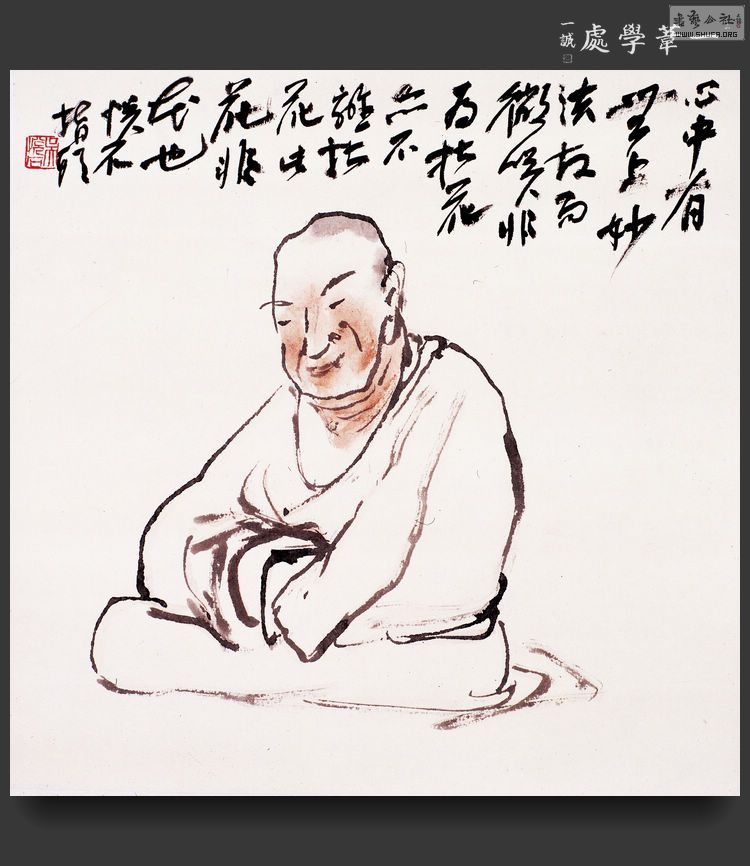 書藝公社
WWW.SHUFA.ORG
一葦學處
一誠
心中有
無上妙
法故而
微笑非
為拈花
亦不
離拈
花此
花非
花也
悦石
指頭